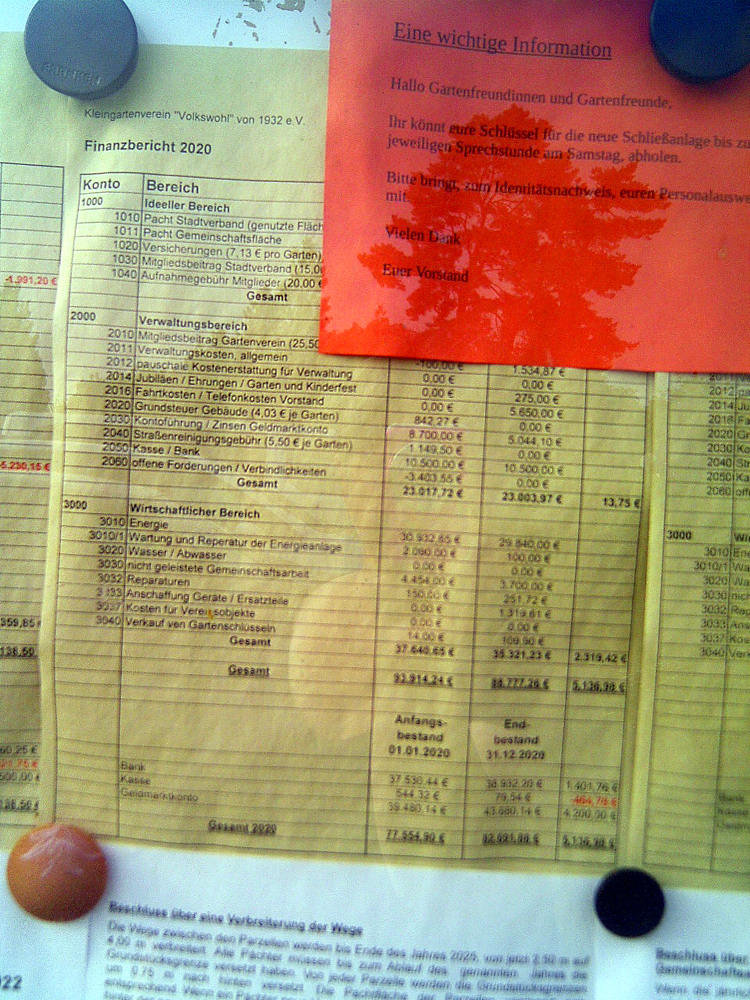 Eine wichtige Information
Hallo Gartenfreundinnen und Gartenfreunde,
Ihr könnt eure Schlüssel für die neue Schließanlage bis zu
jeweiligen Sprechstunde am Samstag, abholen.
Bitte bringt, zum Identitätsnachweis, euren Personalauswe
mit.
Vielen Dank
Euer Vorstand
Kleingartenverein "Volkswohl" von 1932 e.V.
Finanzbericht 2020
Konto Bereich
1000 Ideeller Bereich
1010 Pacht Stadtverband (genutzte Fläch
1011 Pacht Gemeinschaftsfläche
1020 Versicherungen (7,13 € pro Garten)
1030 Mitgliedsbeitrag Stadtverband (15,0
1040 Aufnahmegebühr Mitglieder (20,00 €
Gesamt
2000 Verwaltungsbereich
2010 Mitgliedsbeitrag Gartenverein (25,50
2011 Verwaltungskosten, allgemein -100,00 € 1.534,87 €
2012 pauschale Kostenerstattung für Verwaltung 0,00 € 0,00 €
2014 Jubiläen / Ehrungen / Garten und Kinderfest 0,00 € 275,00 €
2016 Fahrtkosten / Telefonkosten Vorstand 0,00 € 5.650,00 €
2020 Grundsteuer Gebäude (4,03 € je Garten) 842,27 € 0,00 €
2030 Kontoführung / Zinsen Geldmarktkonto 8.700,00 € 5.044,10 €
2040 Straßenreinigungsgebühr (5,50 € je Garten) 1.149,50 € 0,00 €
2050 Kasse / Bank 10.500,00 € 10.500,00 €
2060 offene Forderungen / Verbindlichkeiten -3.403,55 € 0,00 €
Gesamt 23.017,72 € 23.003,97 € 13,75 €
3000 Wirtschaftlicher Bereich
3010 Energie 30.932,65 € 29.840,00 €
3010/1 Wartung und Reperatur der Energieanlage 2.090,00 € 100,00 €
3020 Wasser / Abwasser 0,00 € 0,00 €
3030 nicht geleistete Gemeinschaftsarbeit 4.454,00 € 3.700,00 €
3032 Reparaturen 150,00 € 251,72 €
3033 Anschaffung Geräte / Ersatzteile 0,00 € 1.319,61 €
3037 Kosten für Vereinsobjekte 0,00 € 0,00 €
3040 Verkauf von Gartenschlüsseln 14,00 € 109,90 €
Gesamt 37.640,65 € 35.321,23 € 2.319,42 €
Gesamt 93.914,24 € 88.777,26 € 5.136,98 €
Anfangs- End-
bestand bestand
01.01.2020 31.12.2020
Bank 37.530,44 € 38.932,20 € 1.401,76 €
Kasse 544,32 € 79,54 € -464,78 €
Geldmarktkonto 39.480,14 € 43.680,14 € 4.200,00 €
Gesamt 2020 77.554,90 € 82.691,88 € 5.136,98 €
-1.991,20 €
-5.230,15 €
359,85
Beschluss über eine Verbreiterung der Wege
Die Wege zwischen den Parzellen werden bis Ende des Jahres 2025, von jetzt 2,50 m auf
4,00 m verbreitert. Alle Pächter müssen bis zum Ablauf des genannten Jahres die
Grundstücksgrenze versetzt haben. Von jeder Parzelle werden die Grundstücksgrenzen
um 0,75 m nach hinten versetzt. Die Pachtfläche der Parzellen